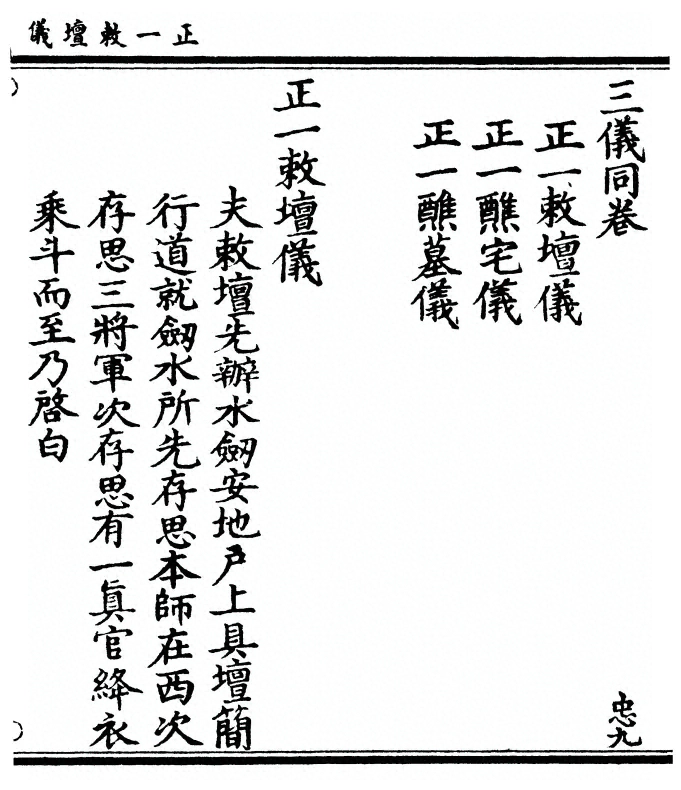 正一敕壇儀
三儀同卷
忠九
正一敕壇儀
正一醮宅儀
正一醮墓儀
正一敕壇儀
夫敕壇先辦水劒安地戶上具壇簡
行道就劒水所先存思本師在西次
存思三將軍次存思有一眞官絳衣
乘斗而至乃啓白